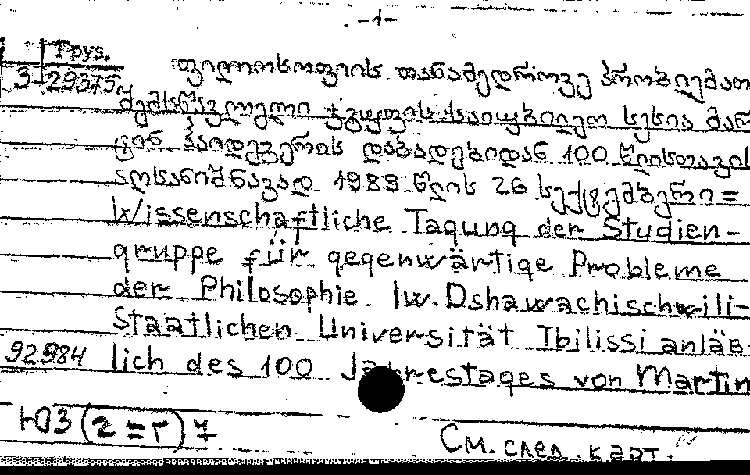 -1-
Груз.
3-29375.
ფილოსოფიის თანამედროვე პრობლემათ
შემსწავლელი ჯგუფის საიუბილეო სესია მარ
ტინ ჰაიდეგერის დაბადებიდან 100 წლისთავის
აღსანიშნავად 1989 წლის 26 სექტემბერი =
Wissenschaftliche Tagung der Studien-
gruppe für gegenwärtige Probleme
der Philosophie. Iw. Dshawachischwili-
Staatlichen Universität Tbilissi anläß-
92984 lich des 100 Jahrestages von Martin
ЮЗ(2=Г)7
См. след. карт.